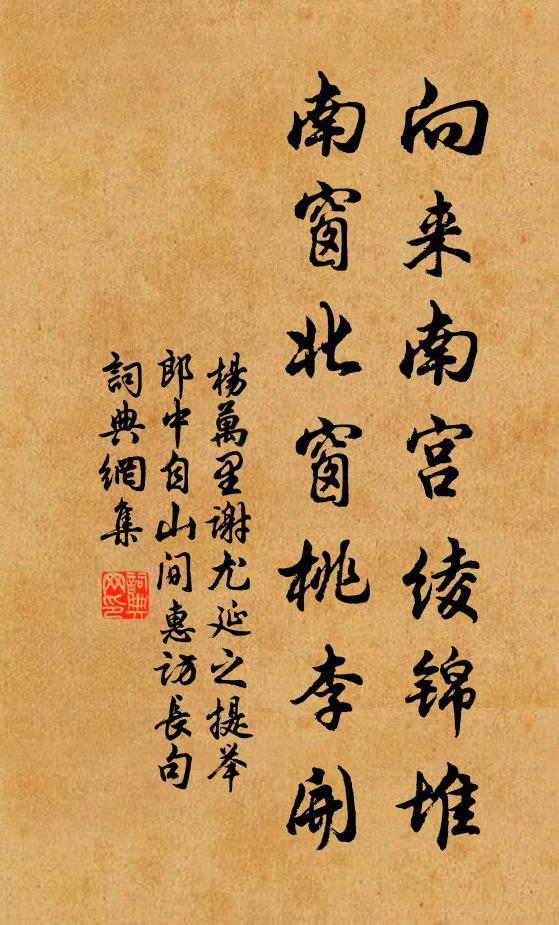 向来南宫绫锦堆
南窗北窗桃李開
楊萬里謝尤延之提举
郎中自山间惠访長句
詞典網集
詞典網印